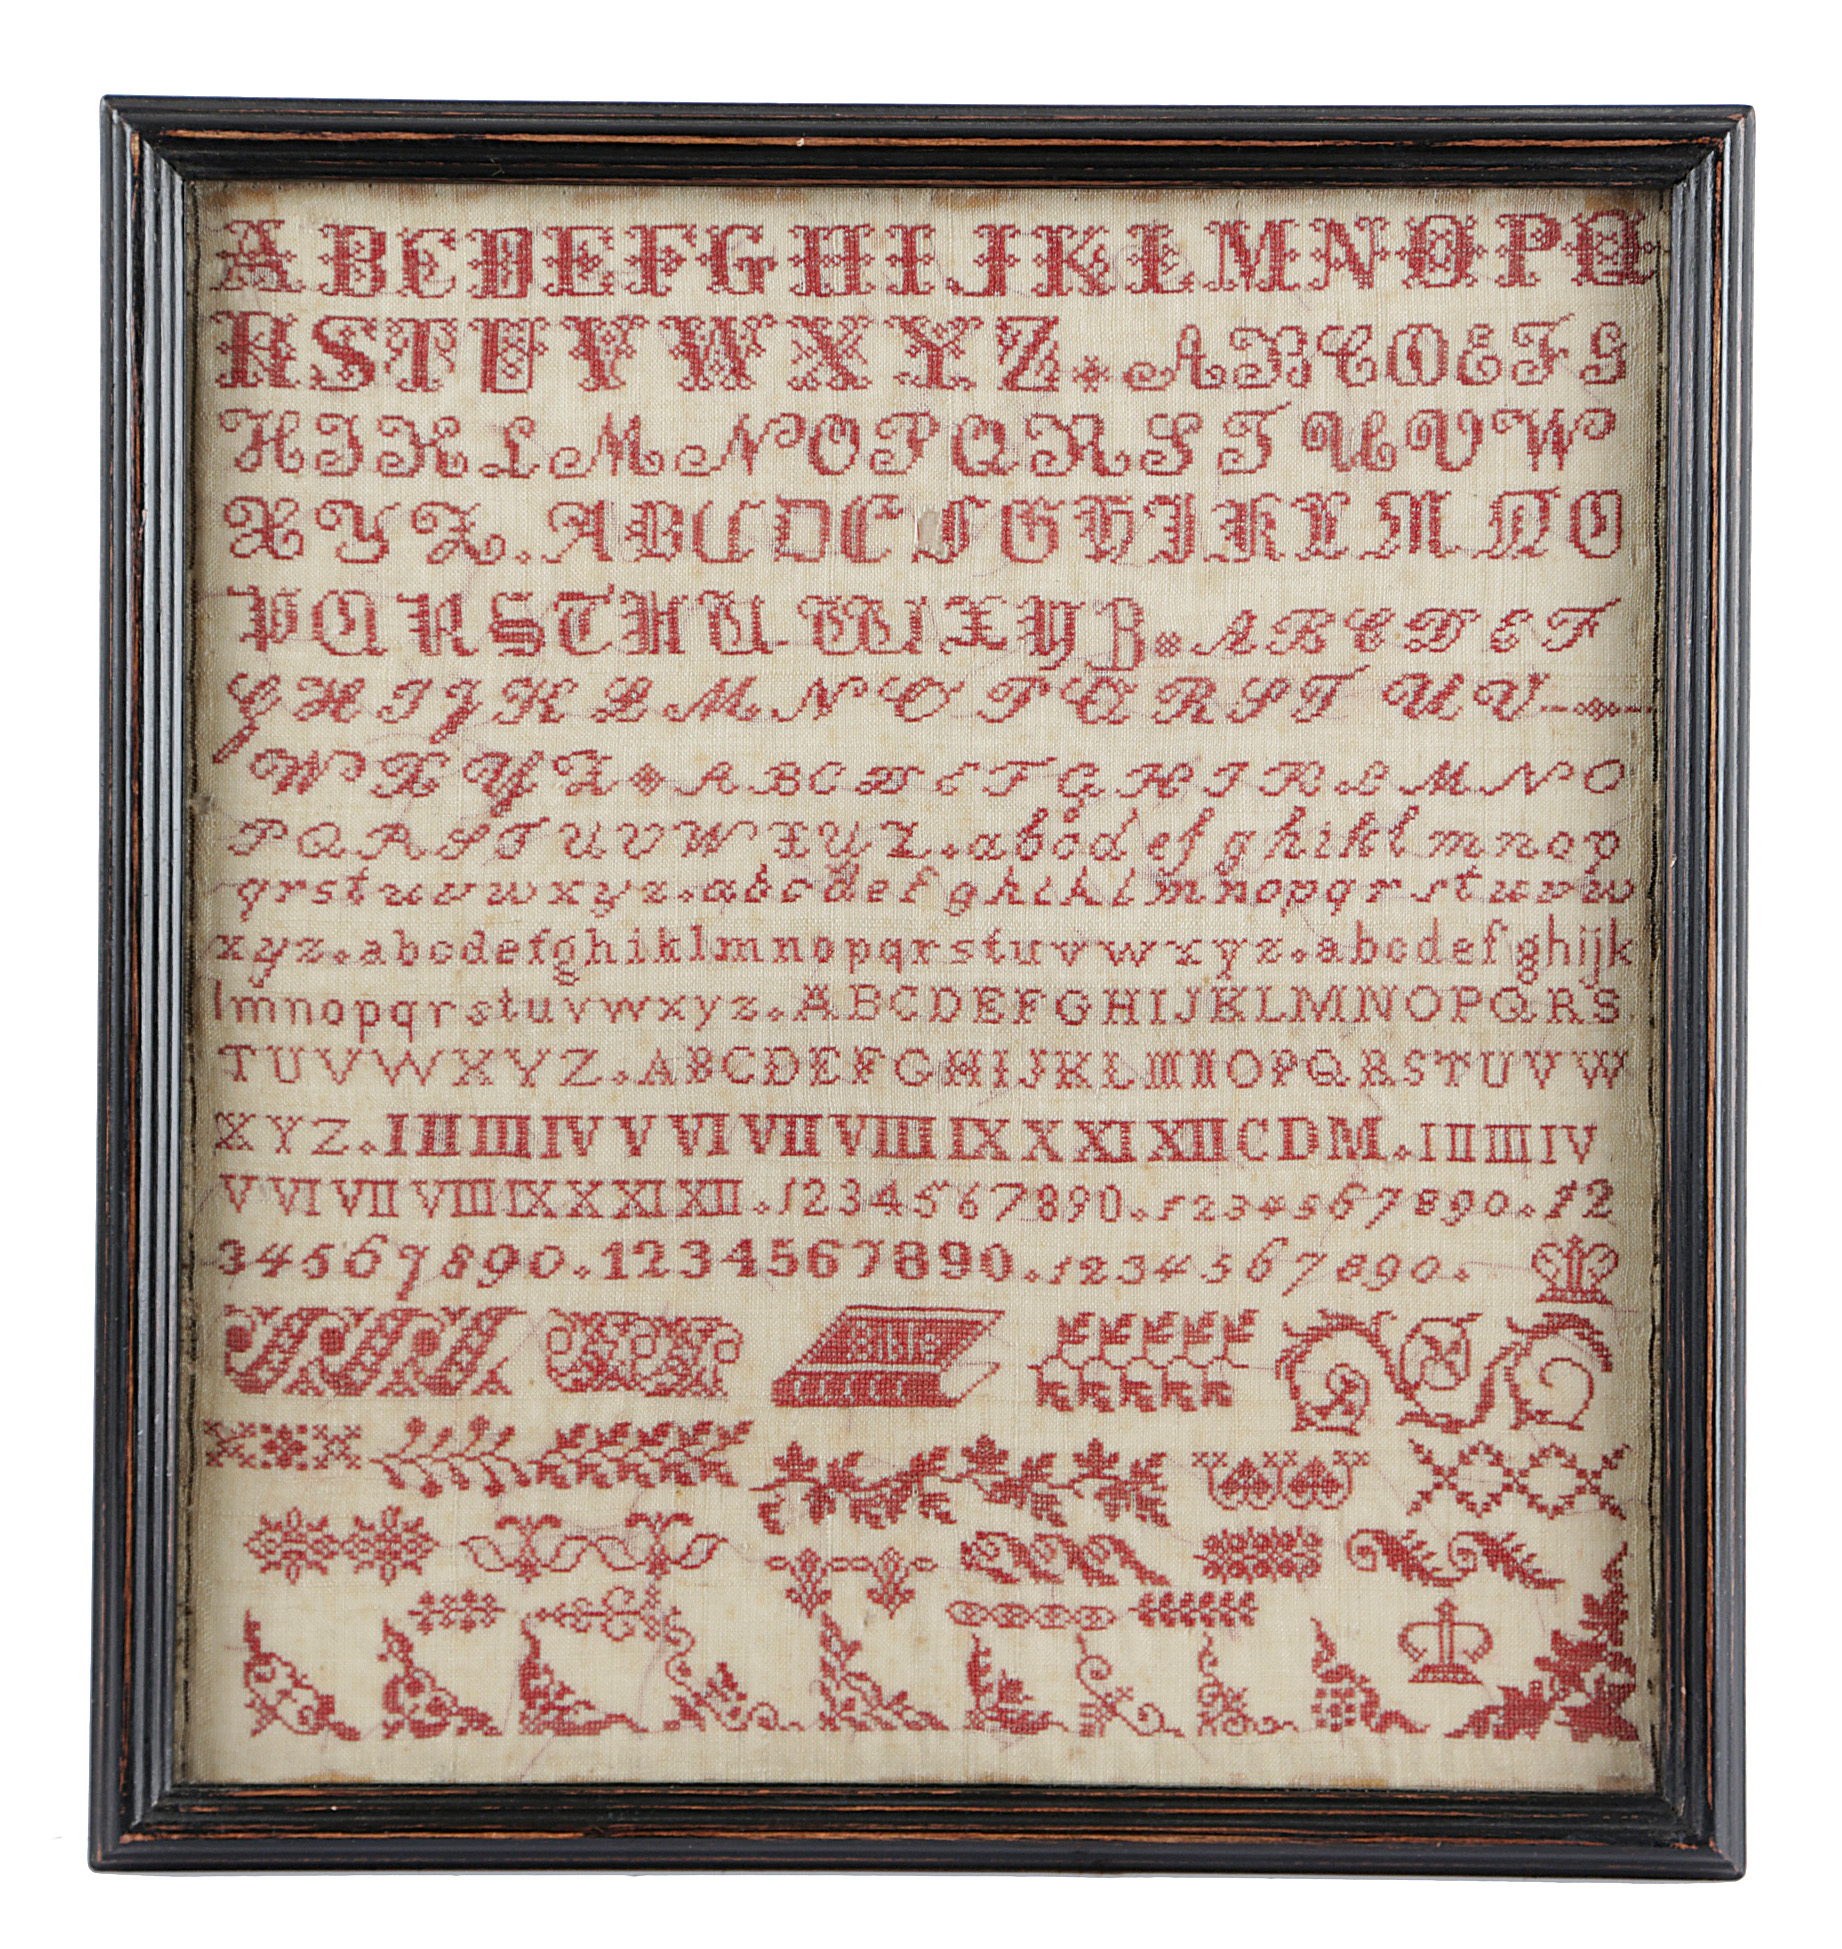 A B C D E F G H I J K L M N O P Q
R S T U V W X Y Z A B C D E F G
H I K L M N O P Q R S T U V W
X Y Z . A B C D E F G H I K L M N O
P Q R S T H U W X Y Z A B C D E F
G H I J K L M N O P Q R S T U V
W X Y Z A B C D E F G H I K L M N O
P Q R S T U V W X Y Z . a b c d e f g h i k l m n o p
q r s t u v w x y z . a b c d e f g h i k l m n o p q r s t u v w
x y z . a b c d e f g h i k l m n o p q r s t u v w x y z . a b c d e f g h i j k
l m n o p q r s t u v w x y z . A B C D E F G H I J K L M N O P Q R S
T U V W X Y Z . A B C D E F G H I J K L M N O P Q R S T U V W
X Y Z . I II III IV V VI VII VIII IX X XI XII C D M . I II III IV
V VI VII VIII IX X XI XII . 1 2 3 4 5 6 7 8 9 0 . 1 2 3 4 5 6 7 8 9 0 . 1 2
3 4 5 6 7 8 9 0 . 1 2 3 4 5 6 7 8 9 0 . 1 2 3 4 5 6 7 8 9 0 .
Bible